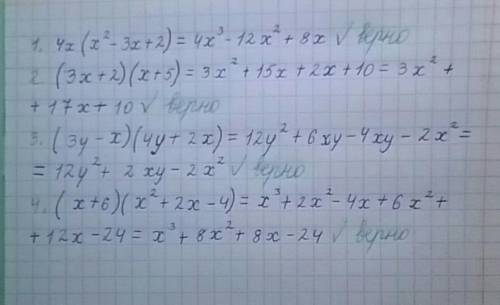 1. 4x(x²-3x+2) = 4x³-12x²+8x √ верно
2. (3x+2)(x+5) = 3x²+15x+2x+10 = 3x²+
+17x+10 √ верно
3. (3y-x)(4y+2x) = 12y²+6xy-4xy-2x² =
= 12y²+2xy-2x² √ верно
4. (x+6)(x²+2x-4) = x³+2x²-4x+6x²+
+12x-24 = x³+8x²+8x-24 √ верно